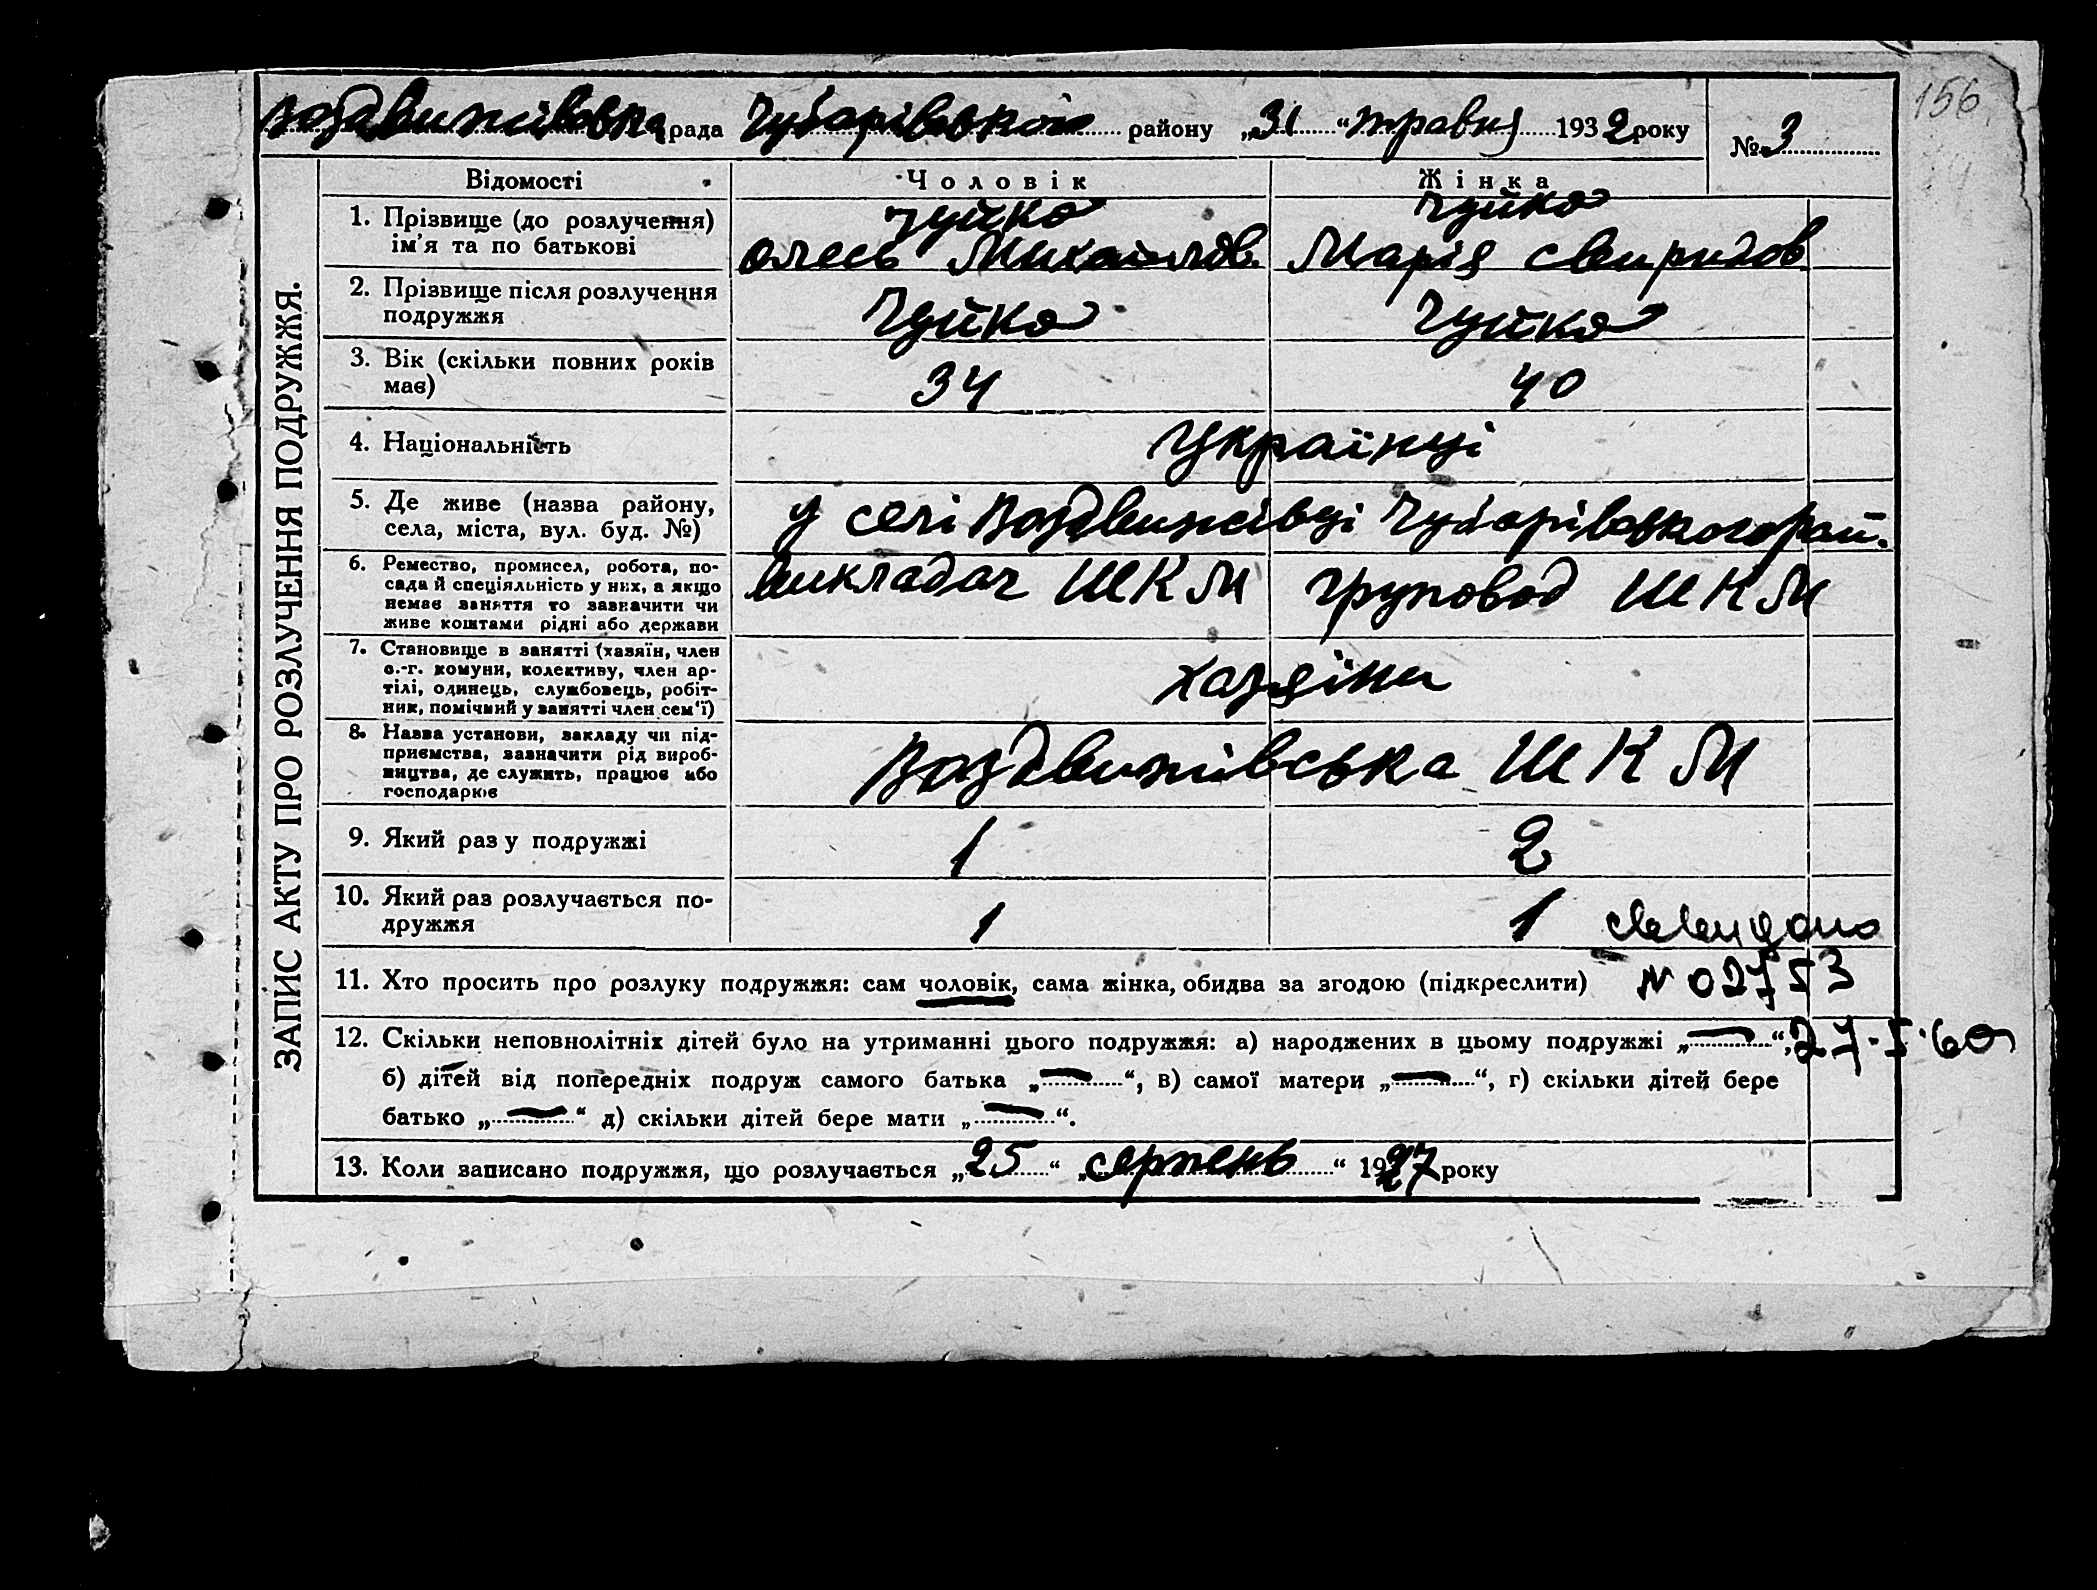 156
Воздвижівська рада Чубарівської району „31“ травня 1932 року №3
ЗАПИС АКТУ ПРО РОЗЛУЧЕННЯ ПОДРУЖЖЯ.
Відомості Чоловік Жінка
1. Прізвище (до розлучення) Чуйко Чуйко
ім'я та по батькові Олесь Михайлов. Марія Свиридов.
2. Прізвище після розлучення
подружжя Чуйко Чуйко
3. Вік (скільки повних років
має) 34 40
4. Національність Українці
5. Де живе (назва району,
села, міста, вул. буд. №) у селі Воздвижівці Чубарівського рай.
6. Ремество, промисел, робота, по-
сада й спеціяльність у них, а якщо
немає заняття то зазначити чи
живе коштами рідні або держави
викладач ШКМ груповод ШКМ
7. Становище в занятті (хазяїн, член
с.-г. комуни, колективу, член ар-
тілі, одинець, службовець, робіт-
ник, помічний у занятті член сем'ї)
хазяїни
8. Назва установи, закладу чи під-
приємства, зазначити рід вироб-
ництва, де служить, працює або
господарює
Воздвижівська ШКМ
9. Який раз у подружжі 1 2
10. Який раз розлучається по-
дружжя 1 1
11. Хто просить про розлуку подружжя: сам чоловік, сама жінка, обидва за згодою (підкреслити) N 02753
12. Скільки неповнолітніх дітей було на утриманні цього подружжя: а) народжених в цьому подружжі „—“, 27-5-60
б) дітей від попередніх подруж самого батька „—“, в) самої матери „—“, г) скільки дітей бере
батько „—“ д) скільки дітей бере мати „—“.
13. Коли записано подружжя, що розлучається „25“ „серпень“ 1927 року